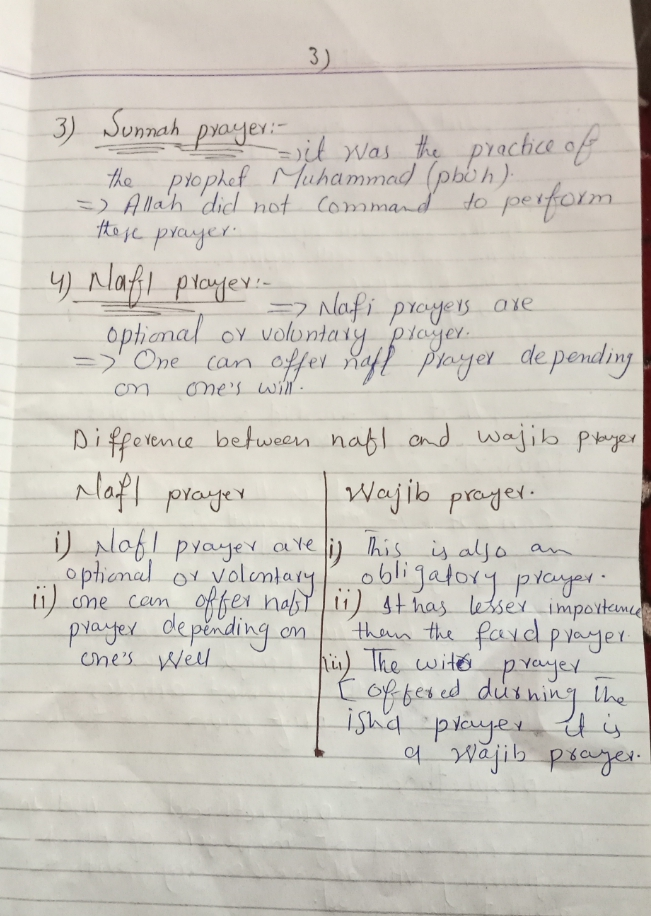 3)
3) Sunnah prayer:-
=> it was the practice of
the prophet Muhammad (pbuh).
=> Allah did not command to perform
these prayer.
4) Nafl prayer:-
=> Nafi prayers are
optional or voluntary prayer.
=> One can offer nafl prayer depending
on one's will.
Difference between nafl and wajib prayer
Nafl prayer
i) Nafl prayer are
optional or volontary
ii) one can offer nafl
prayer depending on
one's well
Wajib prayer.
i) This is also an
obligatory prayer.
ii) It has lesser importance
than the fard prayer
iii) The witr prayer
[ offered durning The
isha prayer it is
a wajib prayer.